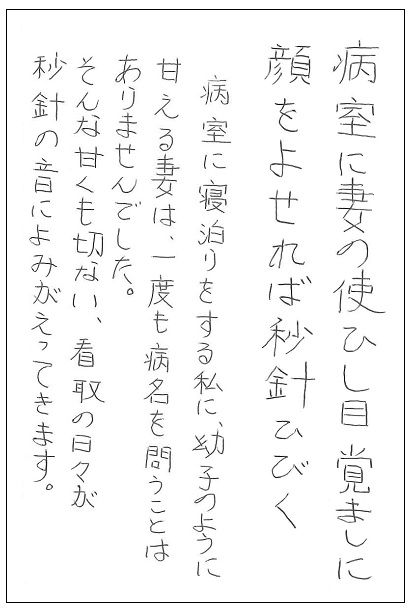 病室に妻の使ひし目覚ましに
顔をよせれば秒針ひびく
病室に寝泊りをする私に、幼子のように
甘える妻は、一度も病名を問うことは
ありませんでした。
そんな甘くも切ない、看取の日々が
秒針の音によみがえってきます。